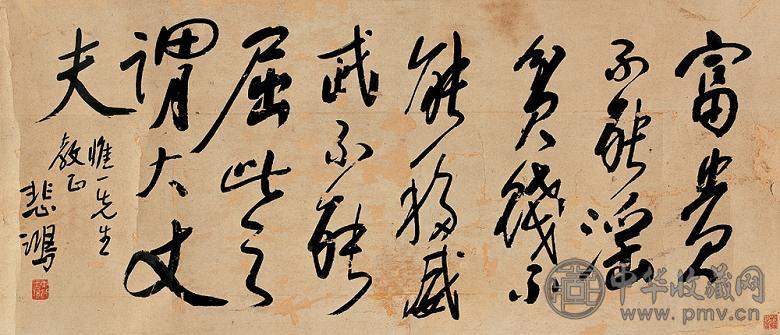 富貴
不能淫
貧賤不
能移威
武不能
屈此之
謂大丈
夫
惟一先生
教正
悲鴻
中华收藏网
www.pmv.cn